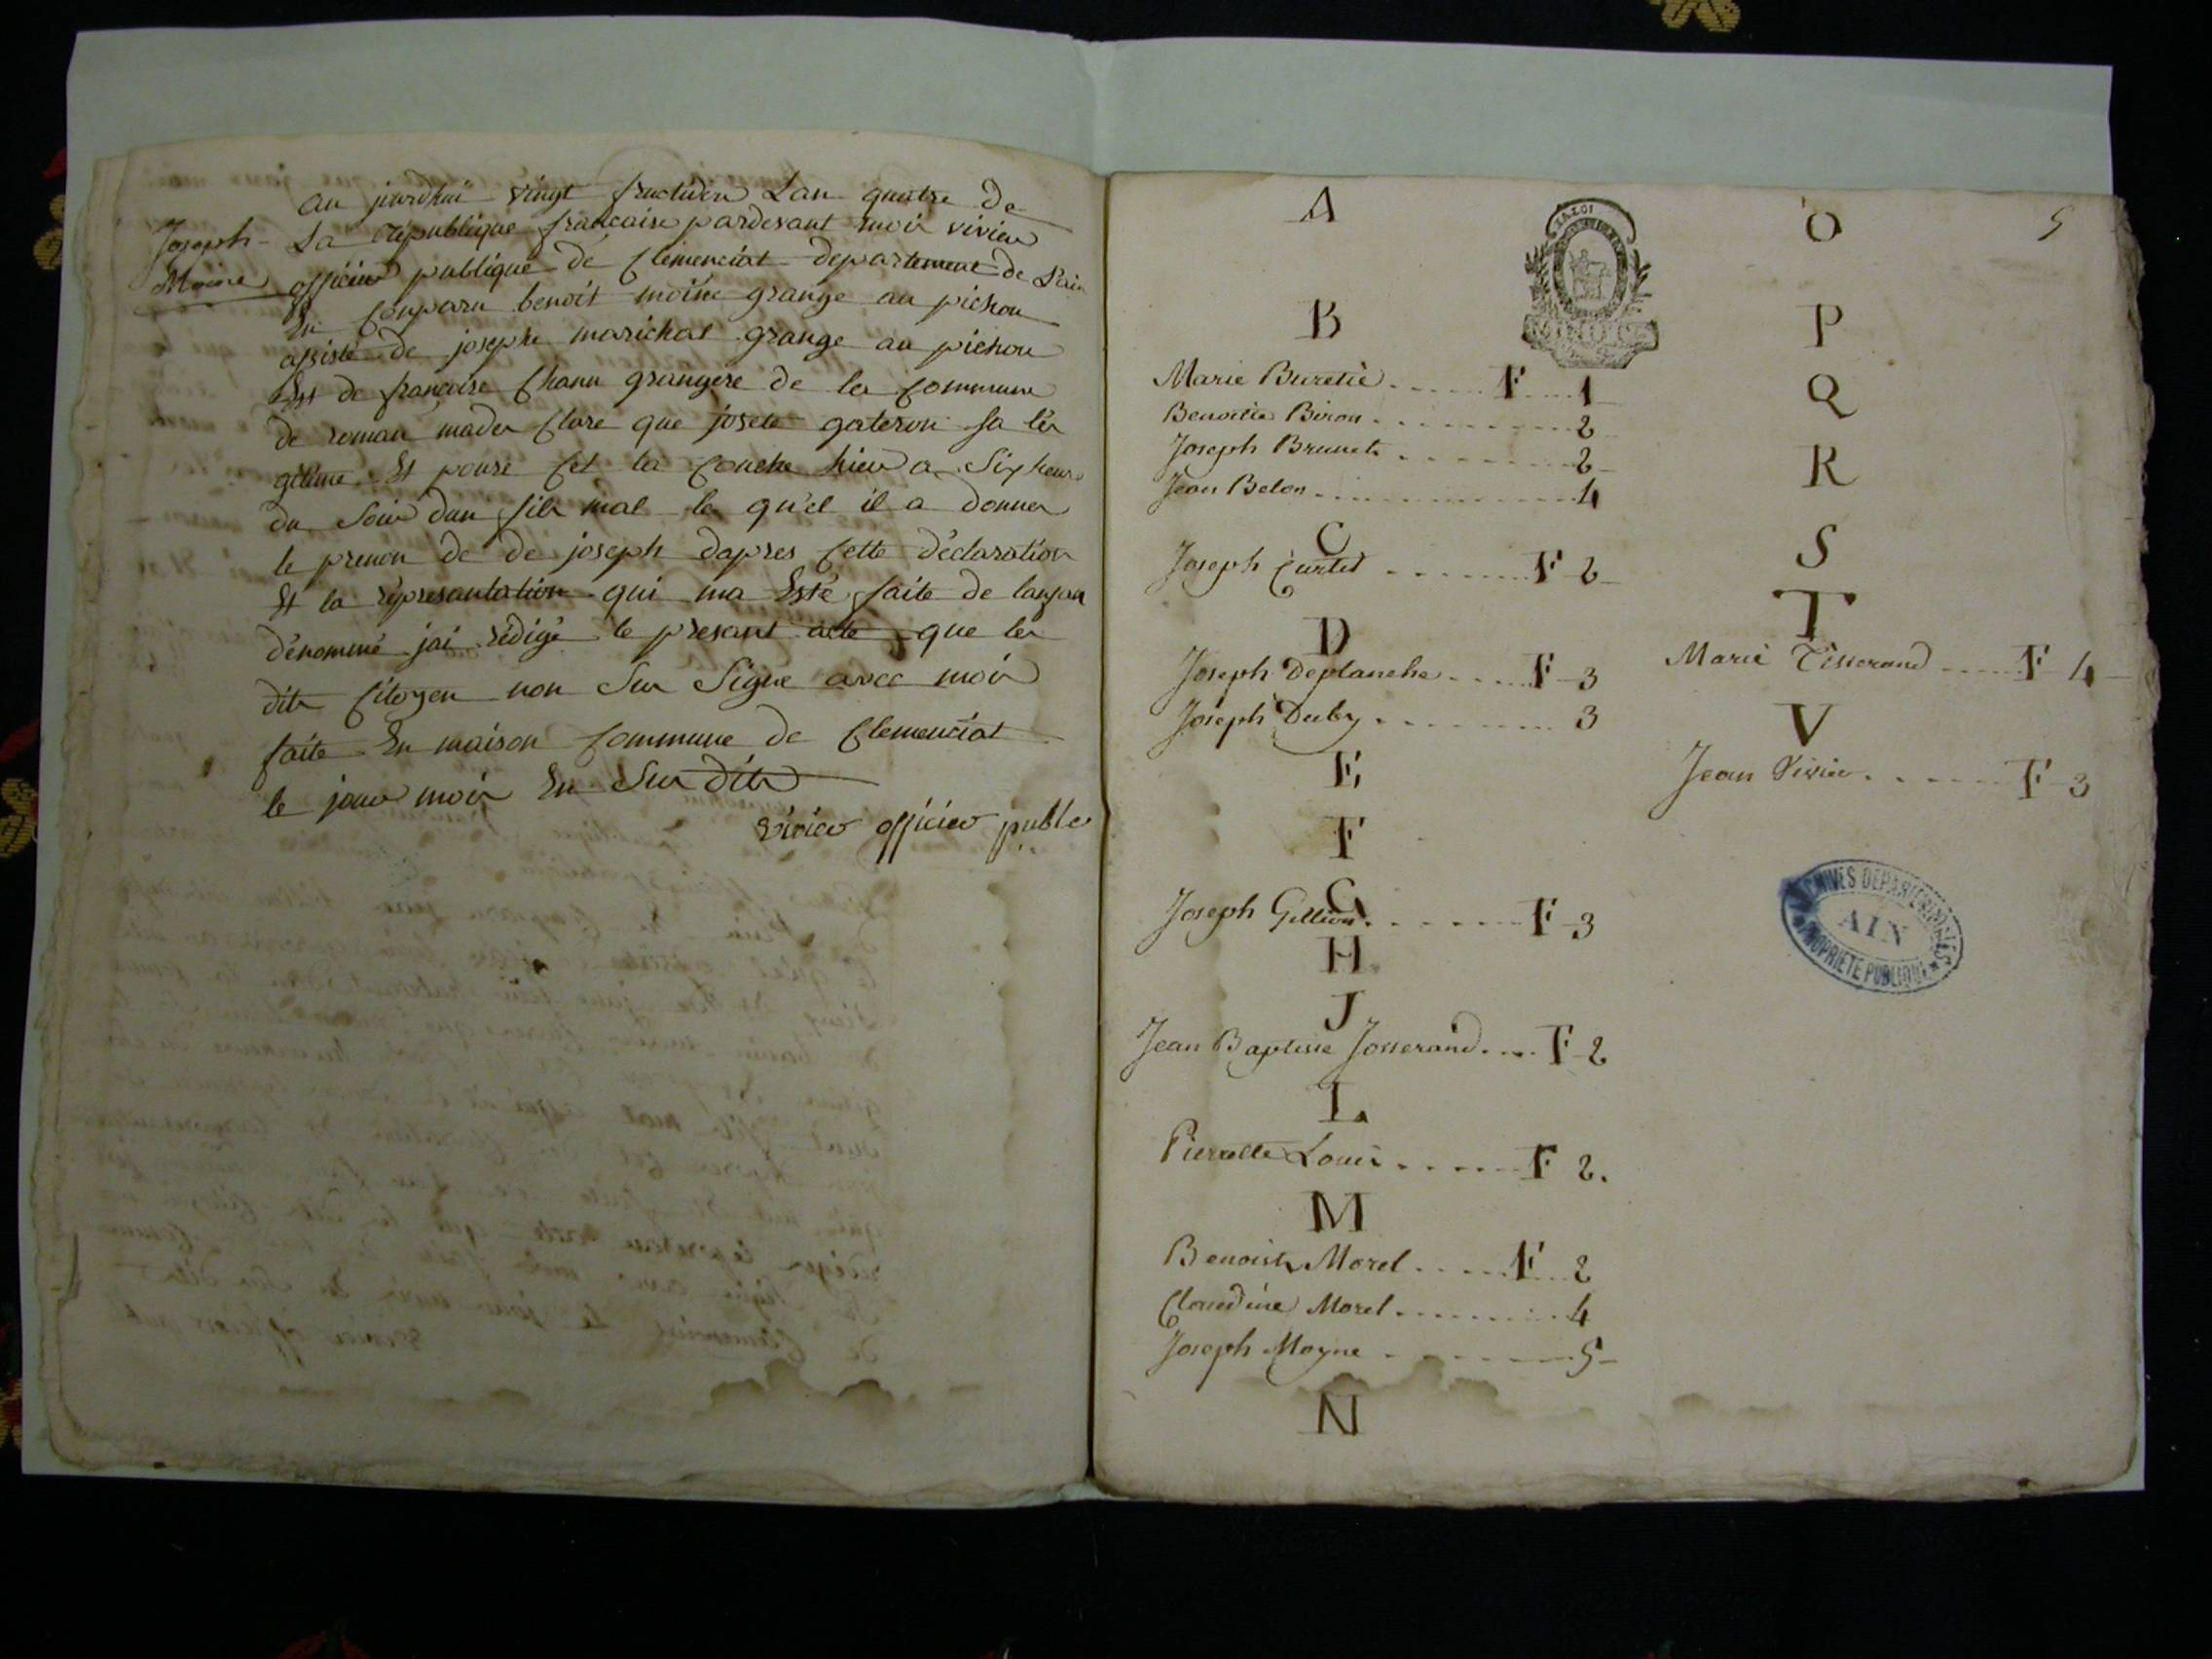 au jourdhui vingt fructidor Lan quatre de
Joseph
Moine
La république francaise pardevant moi vivier
officier publique de Clemenciat departement de Lain
En Conparu benoit moine grange au pichon
asisté de josephe marichal grange au pichon
Et de francoise Chanu grangere de la Commune
de roman mada Clare que josete gateron sa lé
gitime Et pouse Cet la Couche hier a Six heure
du Soir dun fils mal le qu'el il a donner
le prenon de de joseph dapres Cette déclaration
Et la réprésantation qui ma Esté faite de lanfan
dénommé jai rédigé le presant acte que les
dits Citoyen non Sus Signe avec moi
faite En maison Commune de Clemenciat
le jour mois En Sus dits
vivier officier public
5
A
B
Marie Buretié F 1
Benoitte Biron 2
Joseph Brunet 2
Jean Belon 4
C
Joseph Curtet F 2
D
Joseph Deplanche F 3
Joseph Duby 3
E
F
G
Joseph Gillion F 3
H
J
Jean Baptiste Josserand F 2
L
Pierrette Louis F 2.
M
Benoist Morel F 2
Claudine Morel 4
Joseph Moyne 5
N
O
P
Q
R
S
T
Marie Tisserand F 4
V
Jean Vivier F 3
LA LOI
ARCHIVES DEPARTEMENTALES
AIN
PROPRIETE PUBLIQUE